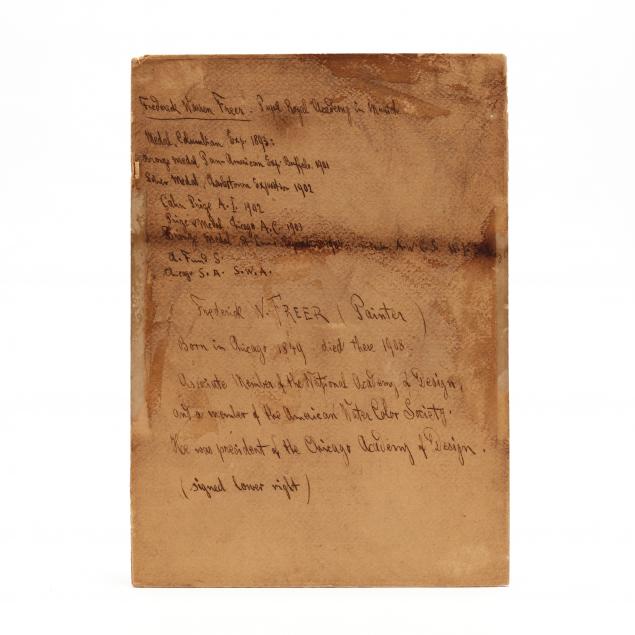 Frederick Warren Freer. Pupil Royal Academy in Munich
Medal, Columbian Exp. 1893.
Bronze medal, Pan American Exp. Buffalo. 1901
Silver Medal, Charlestown Exposition 1902
Cahn Prize A. I. 1902
Prize & Medal Chicago A.C. 1903
Bronze Medal. St Louis A. W. C. S.
A. Fund S.
Chicago S. A. S. W. A.
Frederick W. FREER (Painter)
Born in Chicago 1849 died there 1908
Associate Member of the National Academy of Design,
and a member of the American Water Color Society.
He was president of the Chicago Academy of Design.
(signed lower right)